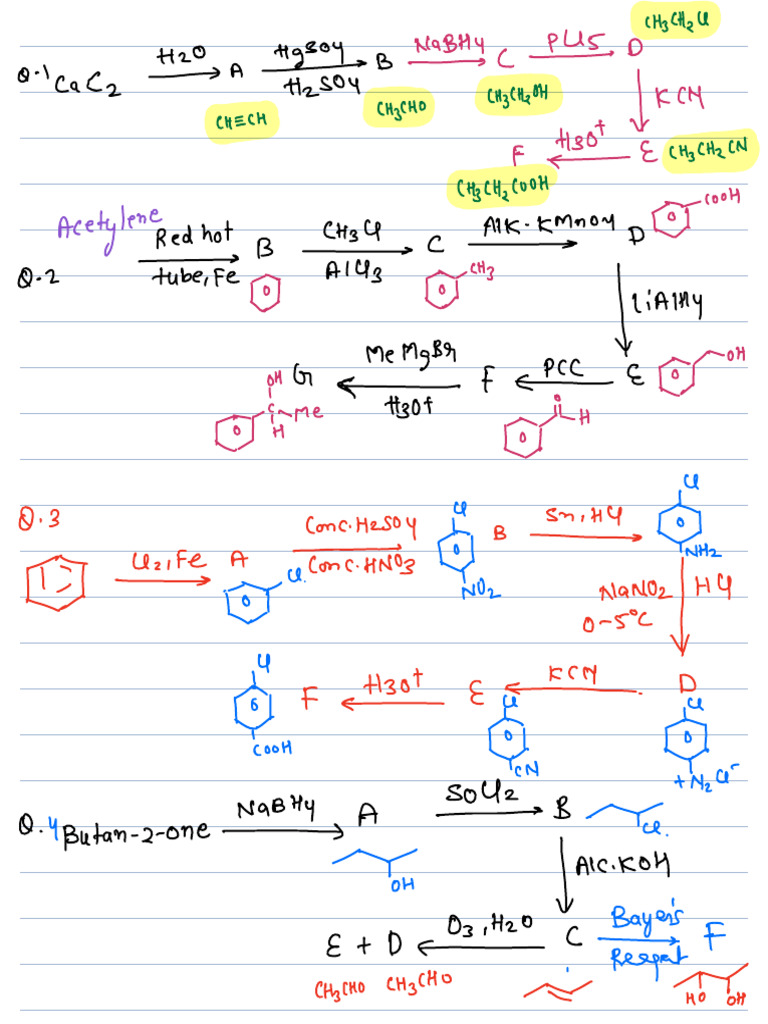 Q.1 CaC2 H2O A HgSO4 H2SO4 B NaBH4 C PCl5 D CH3CH2Cl
CH≡CH CH3CHO CH3CH2OH KCN
F H3O+ E CH3CH2CN
CH3CH2COOH
Acetylene
Q.2 Red hot tube, Fe B CH3Cl AlCl3 C Alk. KMnO4 D COOH
CH3
LiAlH4
G MeMgBr H3O+ F PCC E OH
OH C Me H
O H
Q.3
Cl2, Fe A Conc. H2SO4 Conc. HNO3 Cl B Sn, HCl Cl
Cl NO2 NH2
NaNO2 HCl
0-5°C
Cl F H3O+ E KCN D
COOH Cl CN Cl +N2Cl-
Q.4 Butan-2-one NaBH4 A SOCl2 B
OH Cl.
Alc. KOH
E + D O3, H2O C Bayer's Reagat F
CH3CHO CH3CHO HO OH